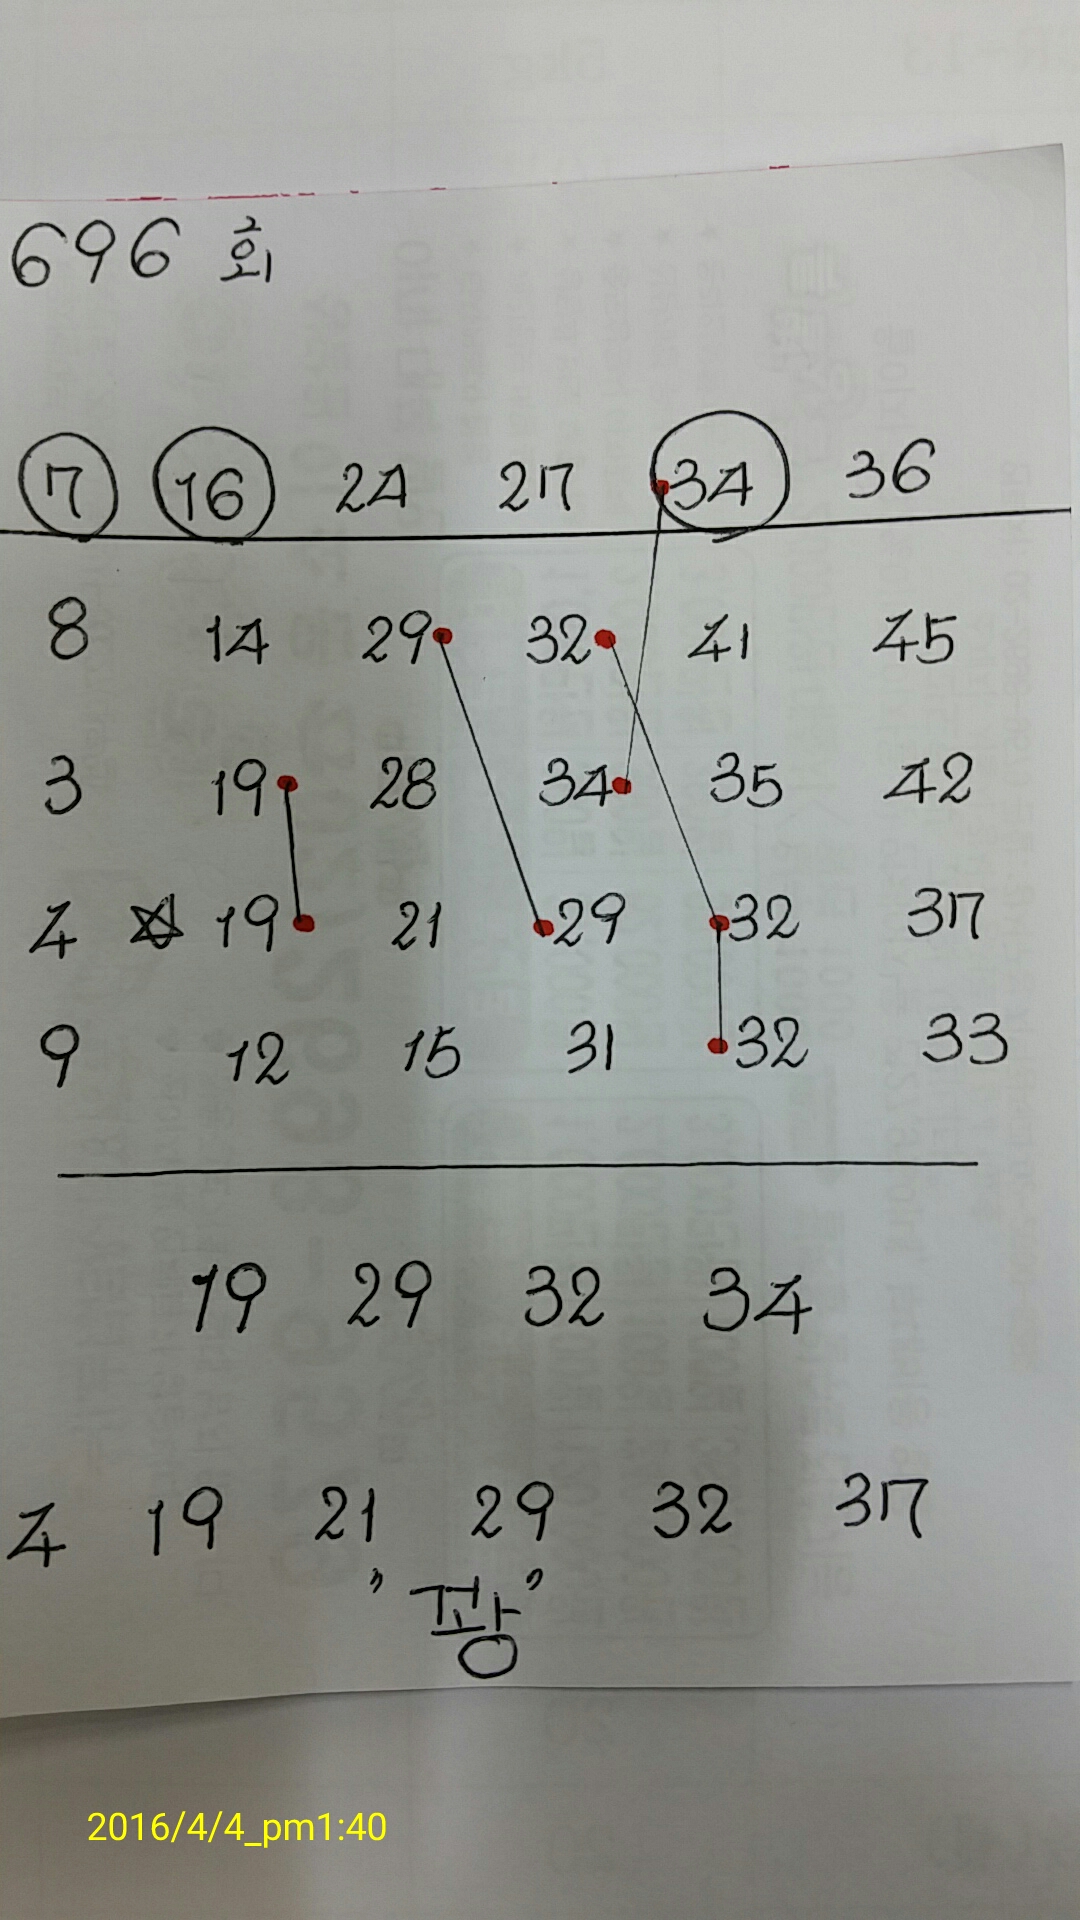 696 회
7 16 24 27 34 36
8 14 29 32 41 45
3 19 28 34 35 42
4 ☆ 19 21 29 32 37
9 12 15 31 32 33
19 29 32 34
4 19 21 29 32 37
"꽝"
2016/4/4_pm1:40